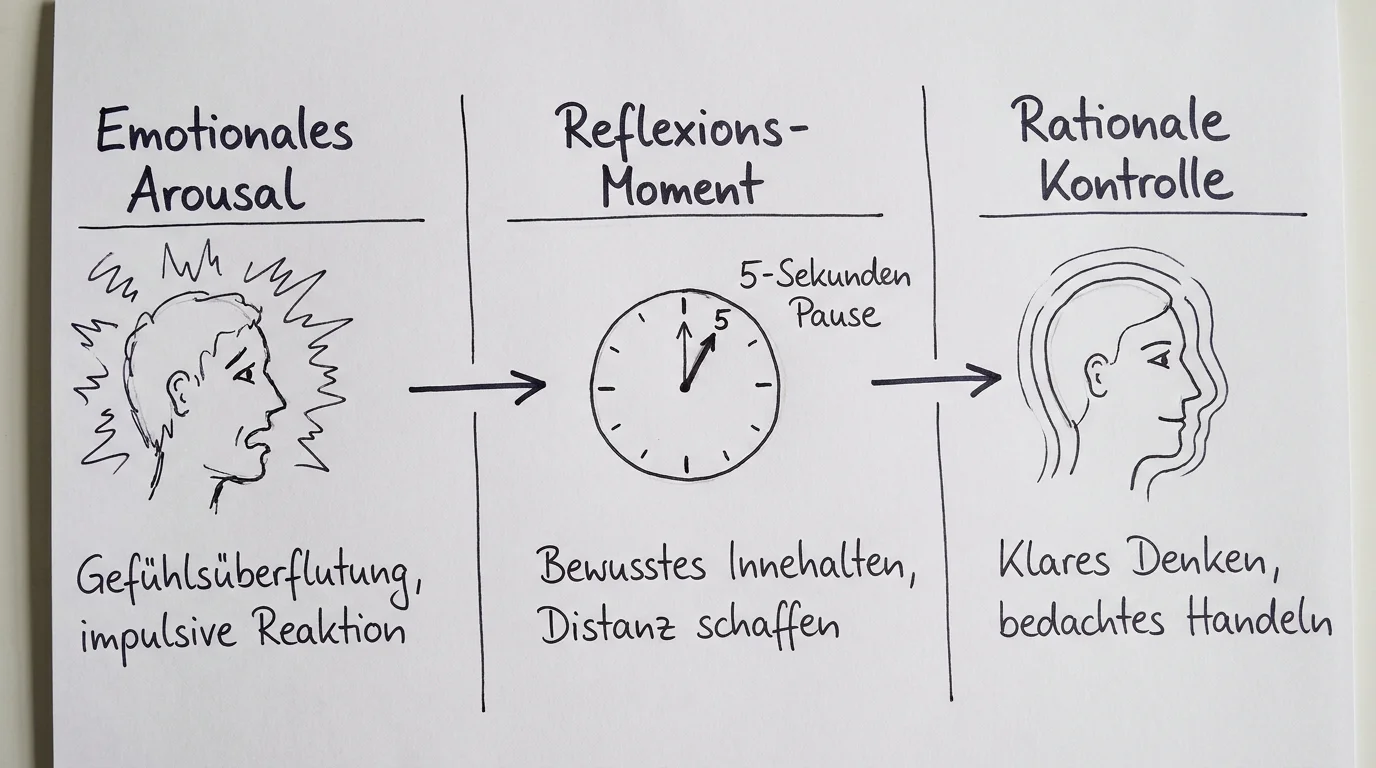 Emotionales
Arousal
Gefühlsüberflutung,
impulsive Reaktion
Reflexions-
Moment
5-Sekunden
Pause
5
Bewusstes Innehalten,
Distanz schaffen
Rationale
Kontrolle
Klares Denken,
bedachtes Handeln